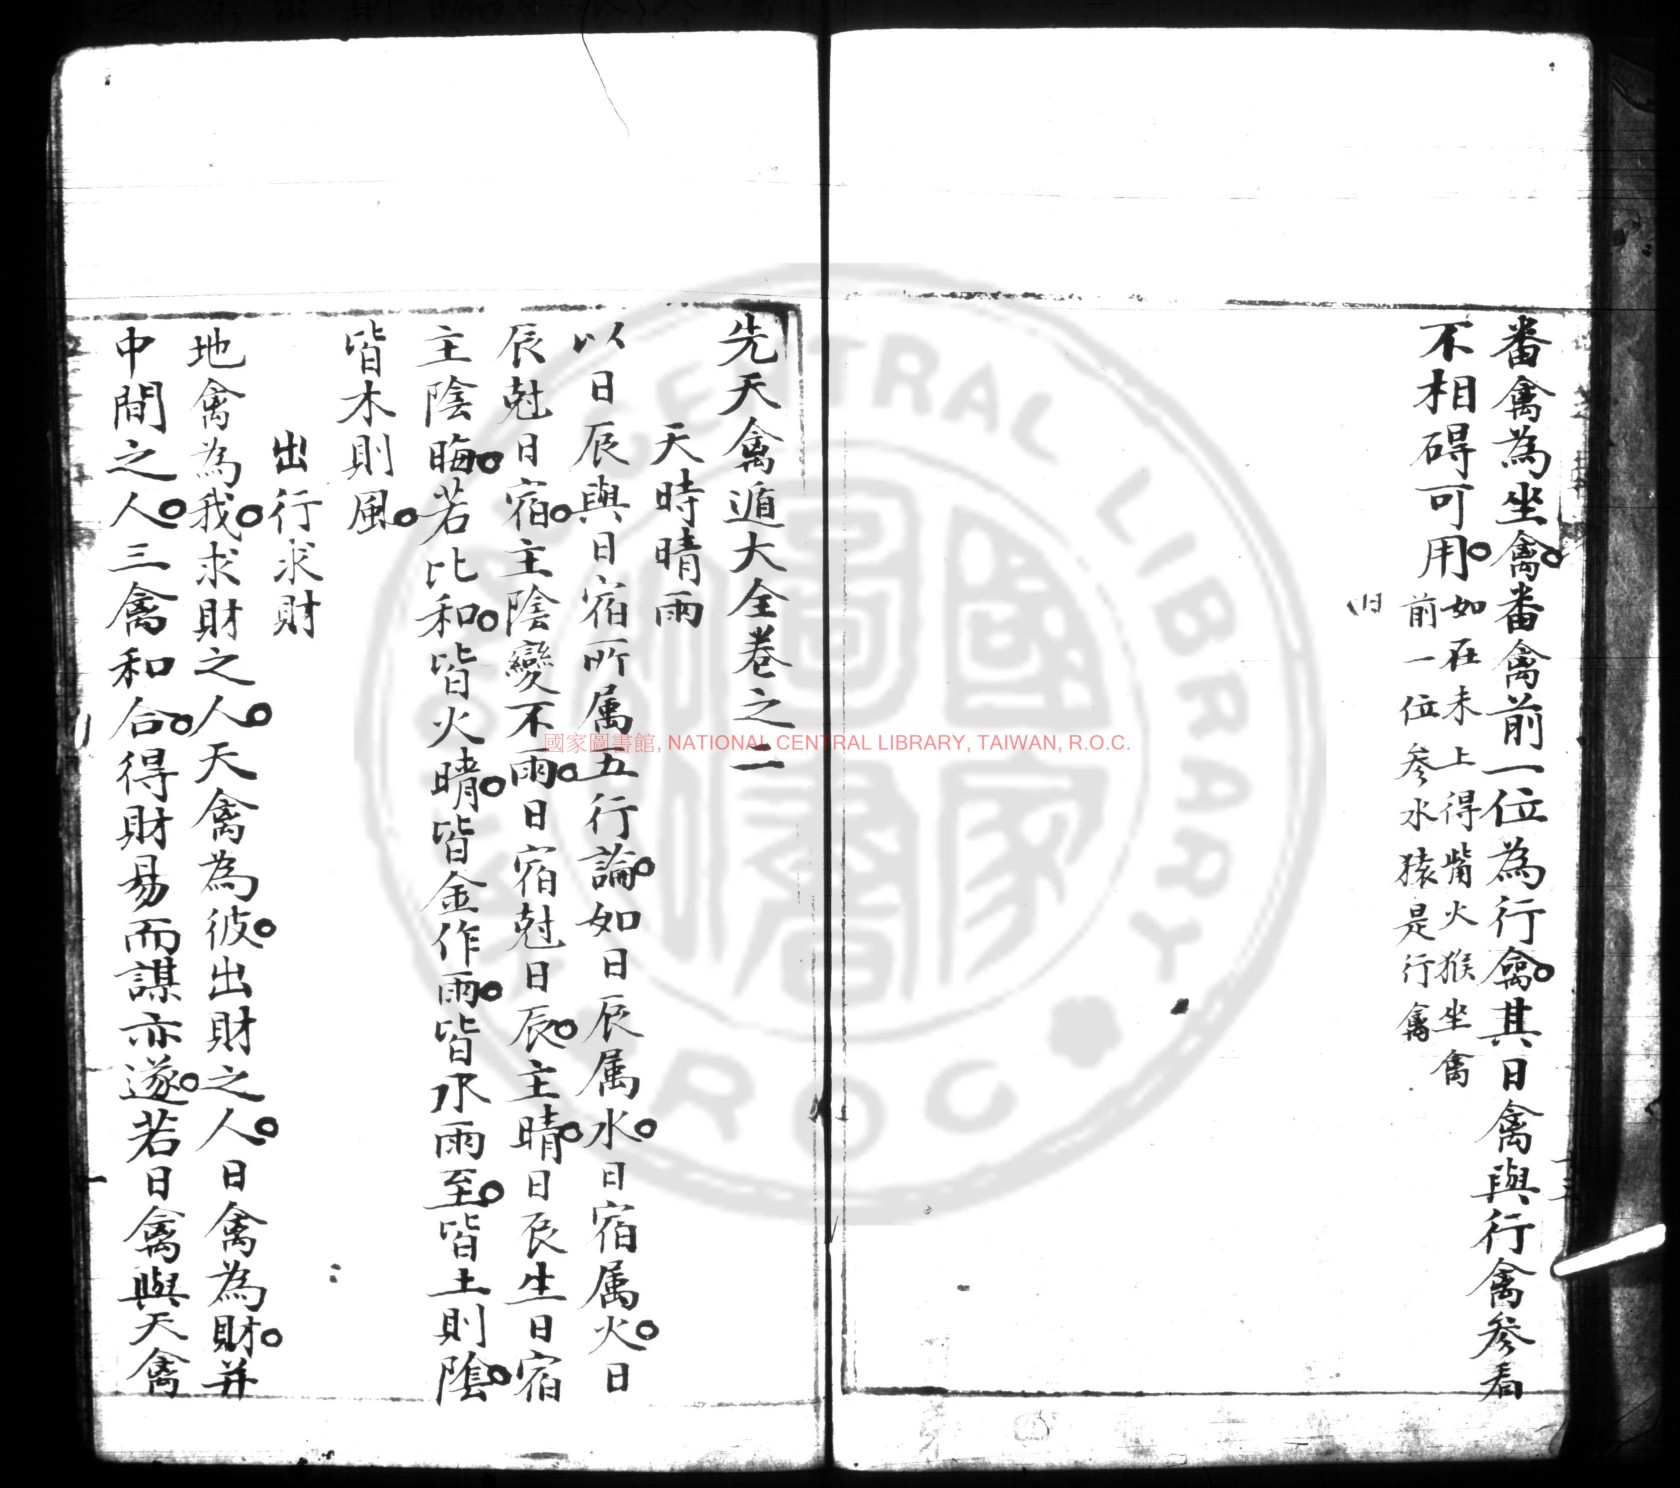 番禽為坐禽。番禽前一位為行禽。其日禽與行禽參看
不相碍可用。如在未上得觜火猴坐禽
前一位參水猿是行禽
先天禽遁大全卷之二
天時晴雨
以日辰與日宿所属五行論。如日辰属水。日宿属火。日
辰尅日宿。主陰變不雨。日宿尅日辰。主晴。日辰生日宿
主陰晦。若比和。皆火晴。皆金作雨。皆水雨至。皆土則陰。
皆木則風。
出行求財
地禽為我。求財之人。天禽為彼。出財之人。日禽為財。并
中間之人。三禽和合。得財易而謀亦遂。若日禽與天禽
國家圖書館, NATIONAL CENTRAL LIBRARY, TAIWAN, R.O.C.
NATIONAL CENTRAL LIBRARY
ROC
國家圖書館